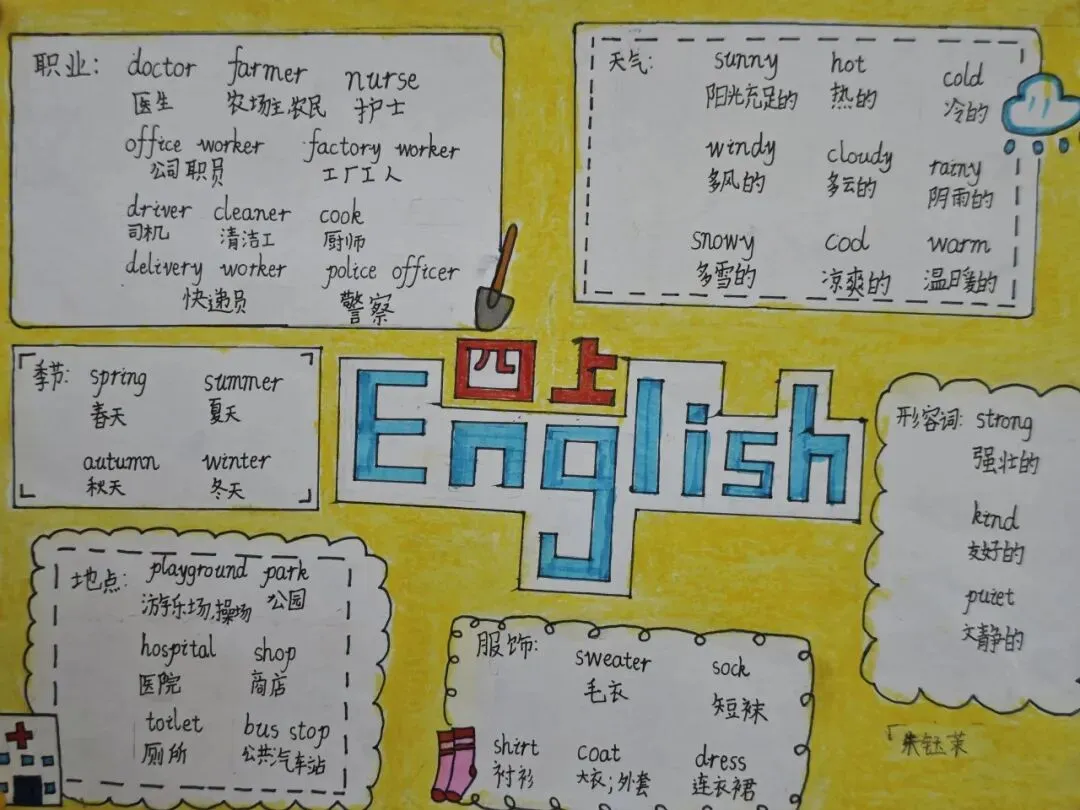 职业: doctor farmer nurse
医生 农场主,农民 护士
office worker factory worker
公司职员 工厂工人
driver cleaner cook
司机 清洁工 厨师
delivery worker police officer
快递员 警察
天气: sunny hot cold
阳光充足的 热的 冷的
windy cloudy rainy
多风的 多云的 阴雨的
snowy cool warm
多雪的 凉爽的 温暖的
四上
English
季节: spring summer
春天 夏天
autumn winter
秋天 冬天
形容词: strong
强壮的
kind
友好的
quiet
文静的
地点: playground park
游乐场,操场 公园
hospital shop
医院 商店
toilet bus stop
厕所 公共汽车站
服饰: sweater sock
毛衣 短袜
shirt coat dress
衬衫 大衣;外套 连衣裙